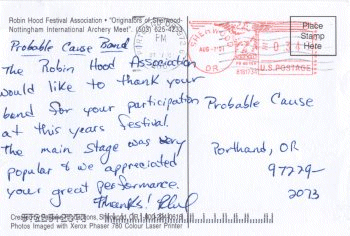 Robin Hood Festival Association • "Originators of Sherwood-
Nottingham International Archery Meet". (503) 625-4233
Place
Stamp
Here
SHERWOOD
OR
AUG
U.S. POSTAGE
Probable Cause Band
The Robin Hood Association
would like to thank your
band for your participation
at this years festival.
The main stage was very
popular & we appreciated
your great performance.
Thanks!
Probable Cause
Porthand, OR
97229-
2073
Photos Imaged with Xerox Phaser 780 Colour Laser Printer